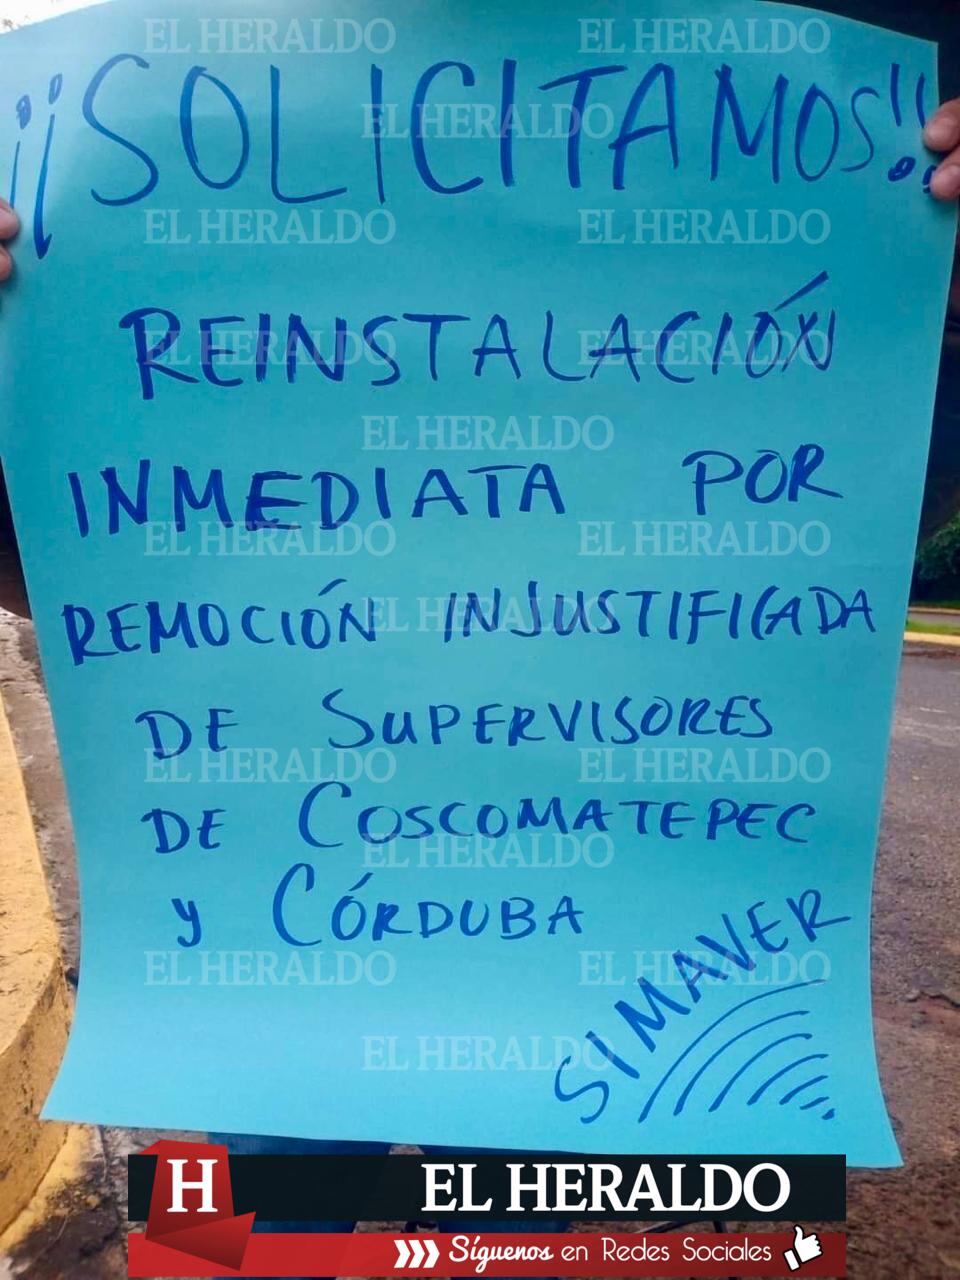 ¡¡SOLICITAMOS!!
REINSTALACIÓN
INMEDIATA POR
REMOCIÓN INJUSTIFICADA
DE SUPERVISORES
DE COSCOMATEPEC
y CÓRDUBA
SIMAVER
EL HERALDO EL HERALDO
EL HERALDO
EL HERALDO EL HERALDO
EL HERALDO EL HERALDO
EL HERALDO
EL HERALDO EL HERALDO
EL HERALDO
EL HERALDO EL HERALDO
EL HERALDO
EL HERALDO EL HERALDO
EL HERALDO
H EL HERALDO
Síguenos en Redes Sociales